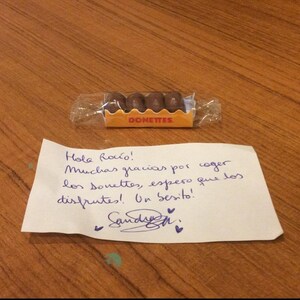 DONETTES
Hola Rocío!
Muchas gracias por coger
los donettes, espero que los
disfrutes! Un besito!
Sandra